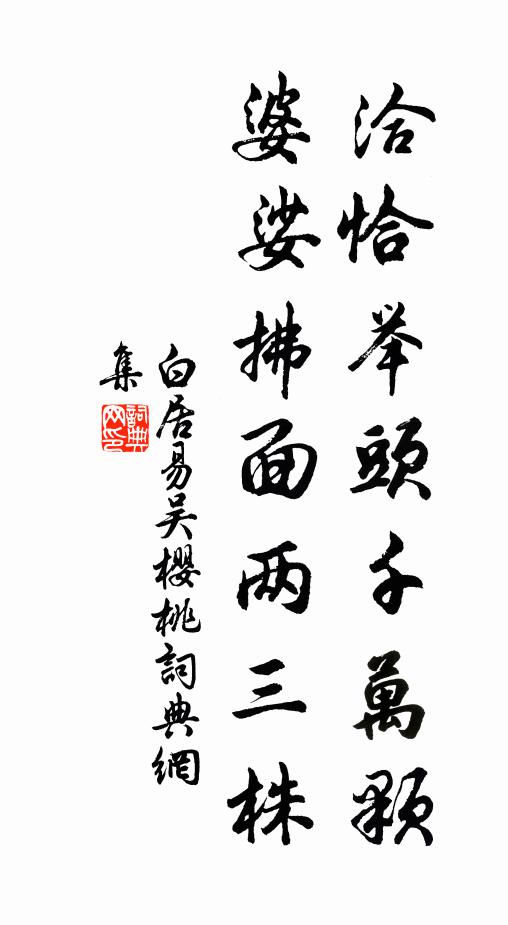 洽恰举頭千萬顆
婆娑拂面两三株
白居易吴櫻桃詞典網
集
詞典
网印